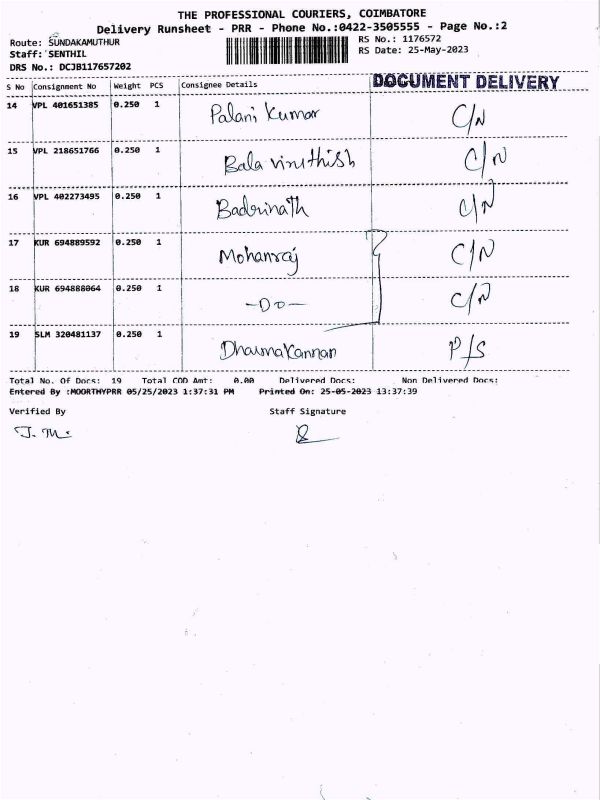 THE PROFESSIONAL COURIERS, COIMBATORE
Delivery Runsheet - PRR - Phone No.:0422-3505555 - Page No.:2
Route: SUNDAKAMUTHUR RS No.: 1176572
Staff: SENTHIL RS Date: 25-May-2023
DRS No.: DCJB117657202
S No Consignment No Weight PCS Consignee Details DOCUMENT DELIVERY
14 VPL 401651385 0.250 1 Palani Kumar C/N
15 VPL 218651766 0.250 1 Bala viruthish C/N
16 VPL 402273495 0.250 1 Badrinath C/N
17 KUR 694889592 0.250 1 Mohanraj C/N
18 KUR 694888064 0.250 1 -Do- C/N
19 SLM 320481137 0.250 1 Dharmakannan P/S
Total No. Of Docs: 19 Total COD Amt: 0.00 Delivered Docs: Non Delivered Docs:
Entered By :MOORTHYPRR 05/25/2023 1:37:31 PM Printed On: 25-05-2023 13:37:39
Verified By Staff Signature